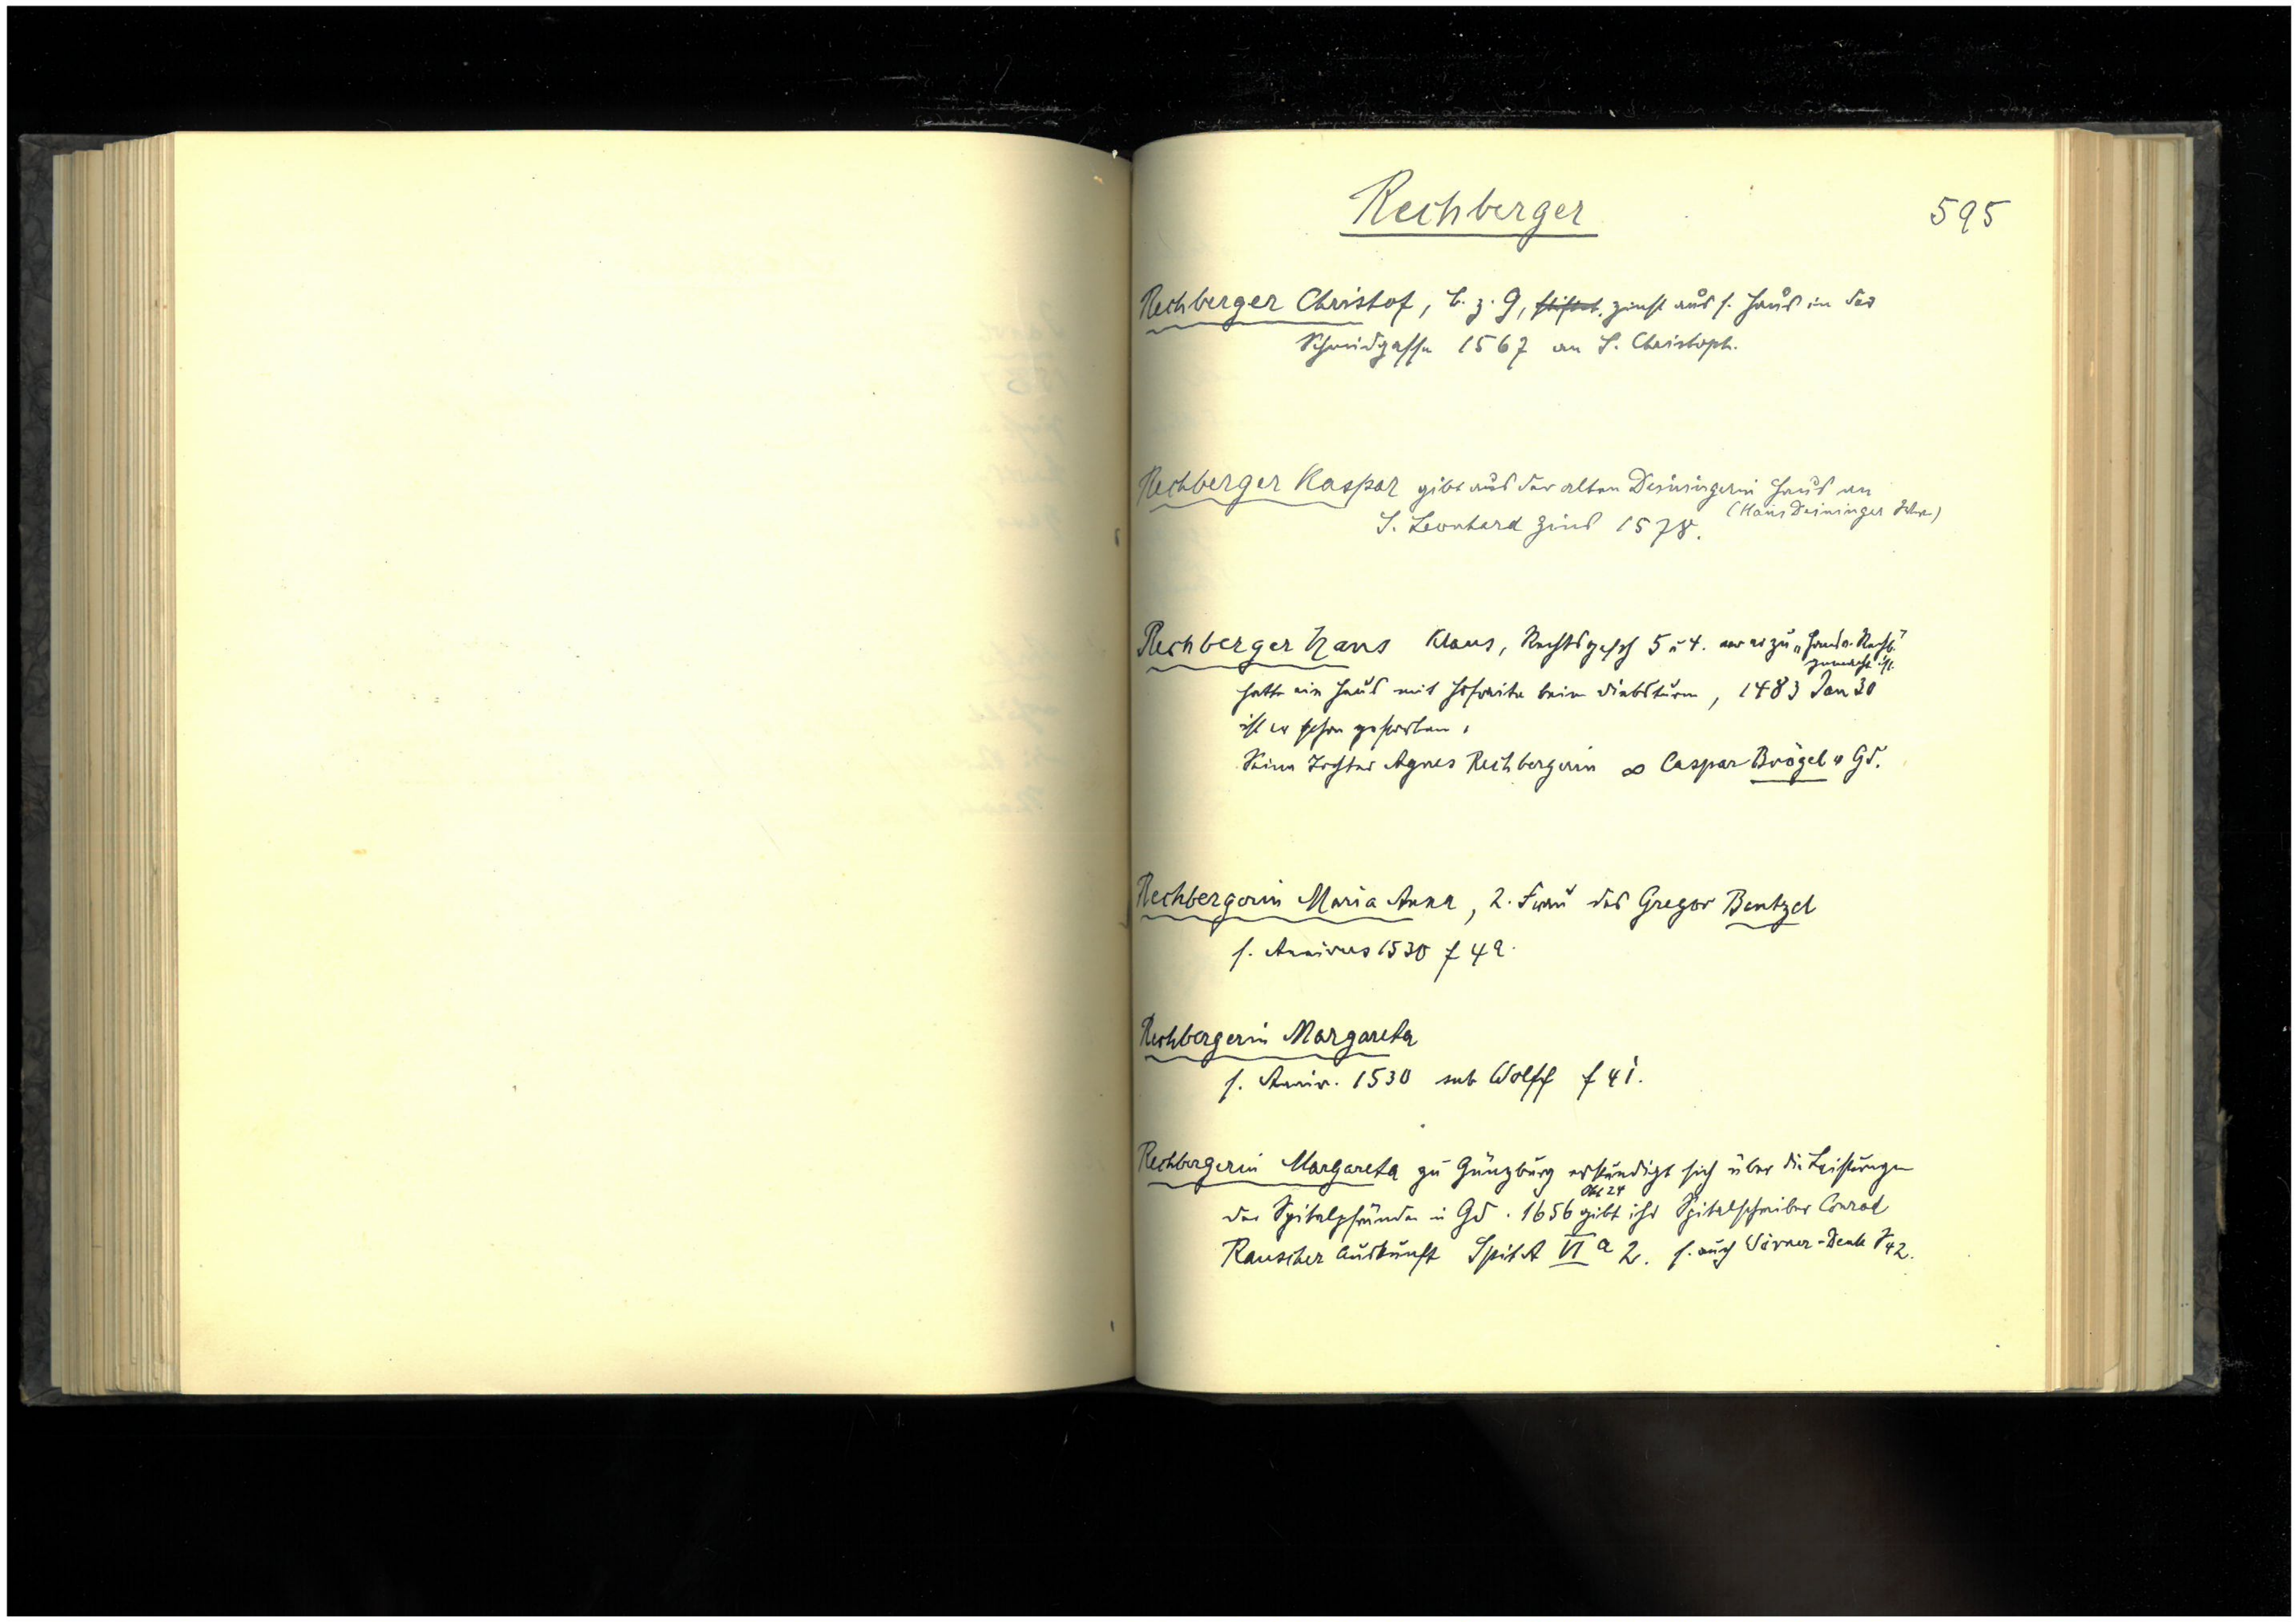 Rechberger
595
Rechberger Christof, b. z. G, stiftet, zinst aus s. Haus in der
Schmidgasse 1567 an S. Christoph.
Rechberger Kaspar gibt aus der alten Deiningerin Haus an
(Hans Deininger
S. Leonhard Zins 1578.
Rechberger Hans Klaus, 5 u 4. zu „Hans Rechb."
gemacht ist.
hatte ein Haus mit Hofraite beim Diebsturm, 1483 Jan 30
ist er schon gestorben.
Seine Tochter Agnes Rechbergerin ∞ Caspar Brögel v Gd.
Rechbergerin Maria Anna, 2. Frau des Gregor Bentzel
s. Annivers 1530 f 42.
Rechbergerin Margareta
s. Anniv. 1530 sub Wolff f 41.
Rechbergerin Margareta zu Günzburg erkundigt sich über die Leistungen
Okt 24
der Spitalpfründen in Gd. 1656 gibt ihr Spitalschreiber Conrad
Rauscher Auskunft SpitA VI a 2. s. auch Wörner-Denk S 42.